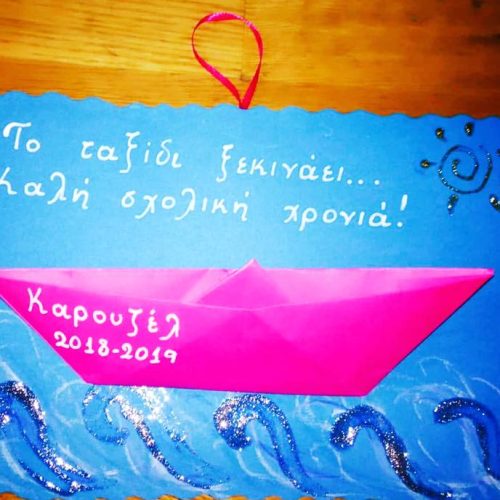 Το ταξίδι ξεκινάει...
Καλή σχολική χρονιά!
Καρουζέλ
2018-2019